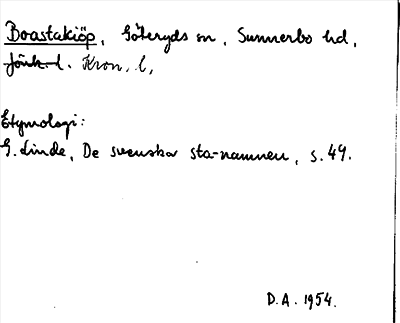 Boastakiöp, Göteryds sn, Sunnerbo hd,
Jönk. l. Kron. l,
Etymologi:
G. Linde, De svenska sta-namnen, s. 49.
D.A. 1954.